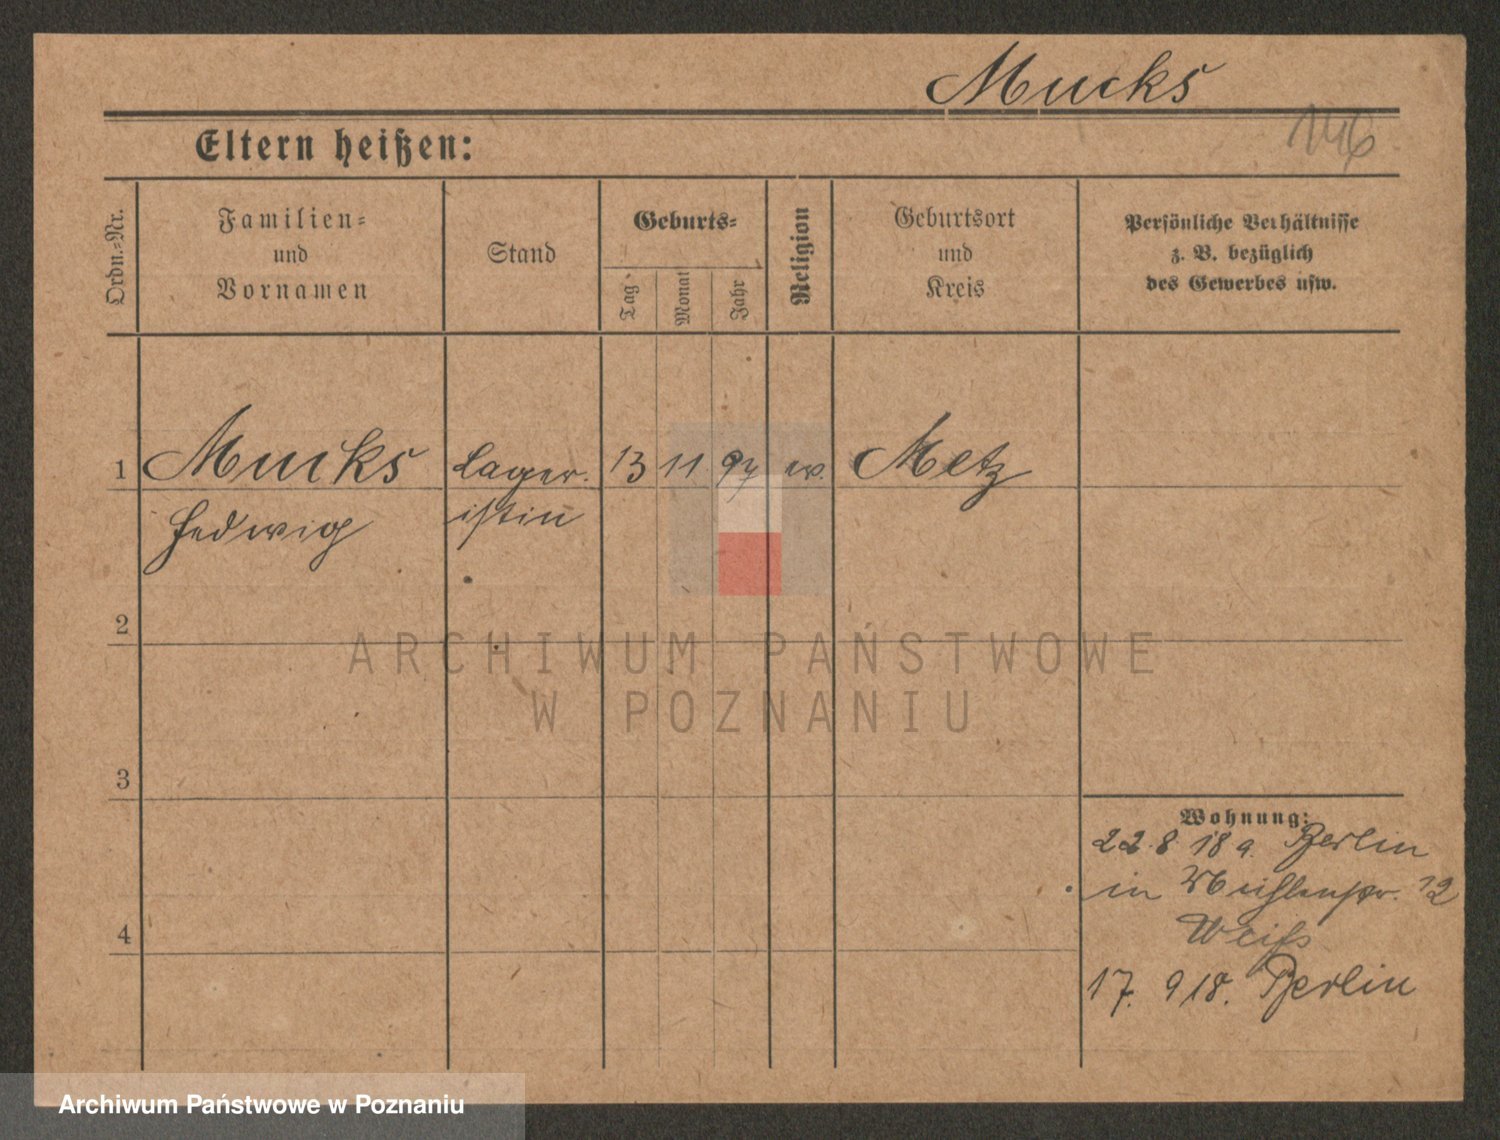 Mucks
146
Eltern heißen:
Ordn.-Nr.
Familien-
und
Vornamen
Stand
Geburts-
Tag
Monat
Jahr
Religion
Geburtsort
und
Kreis
Persönliche Verhältnisse
z. B. bezüglich
des Gewerbes usw.
1 Mucks Lager. 13 11 97 ev. Metz
Hedwig istin
2
3
4
Wohnung:
22.8.18 a. Berlin
in Mühlenstr. 12
Weiß
17. 9 18. Berlin
ARCHIWUM PAŃSTWOWE
W POZNANIU
Archiwum Państwowe w Poznaniu